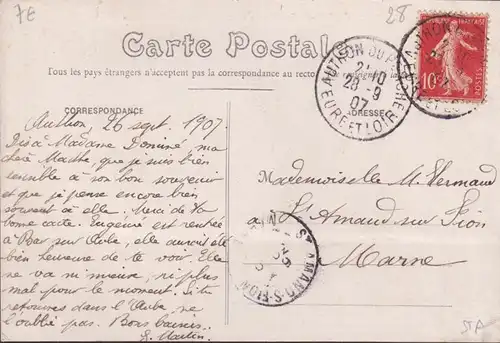 7E
28
Carte Postale
Tous les pays étrangers n'acceptent pas la correspondance au recto
CORRESPONDANCE
ADRESSE
AUTHON DU PERCHE
21 10
28 -9
07
EURE ET LOIR
10
Authon, 26 sept. 1907.
Dis à Madame Dominé, ma
chère Marthe, que je suis bien
sensible à son bon souvenir
et que je pense encore bien
souvent à elle. Merci de ta
bonne carte. Eugénie est rentrée
à Bar sur Aube, elle aurait été
bien heureuse de te voir. Elle
ne va ni mieux, ni plus
mal pour le moment. Si tu
retournes dans l'Aube, ne
l'oublie pas. Bons baisers.
E. Martin.
Mademoiselle M. Vermand
à
St Amand sur Fion
Marne
ST AMAND-S-FION
STA